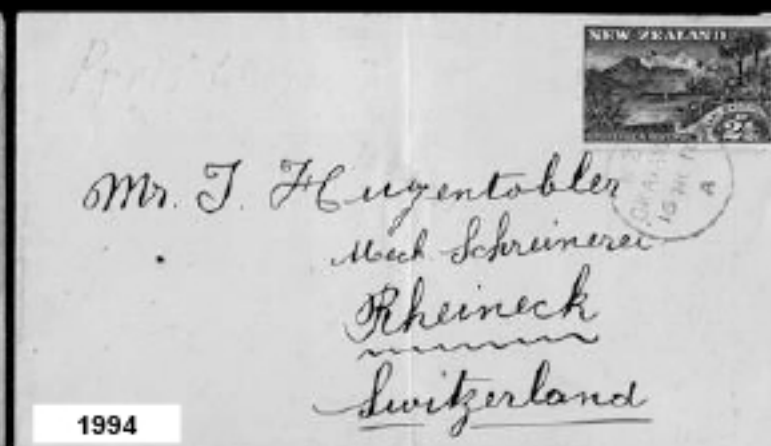 NEW ZEALAND
2½
Mr. J. Hugentobler
Mech. Schreinerei
Rheineck
Switzerland
1994